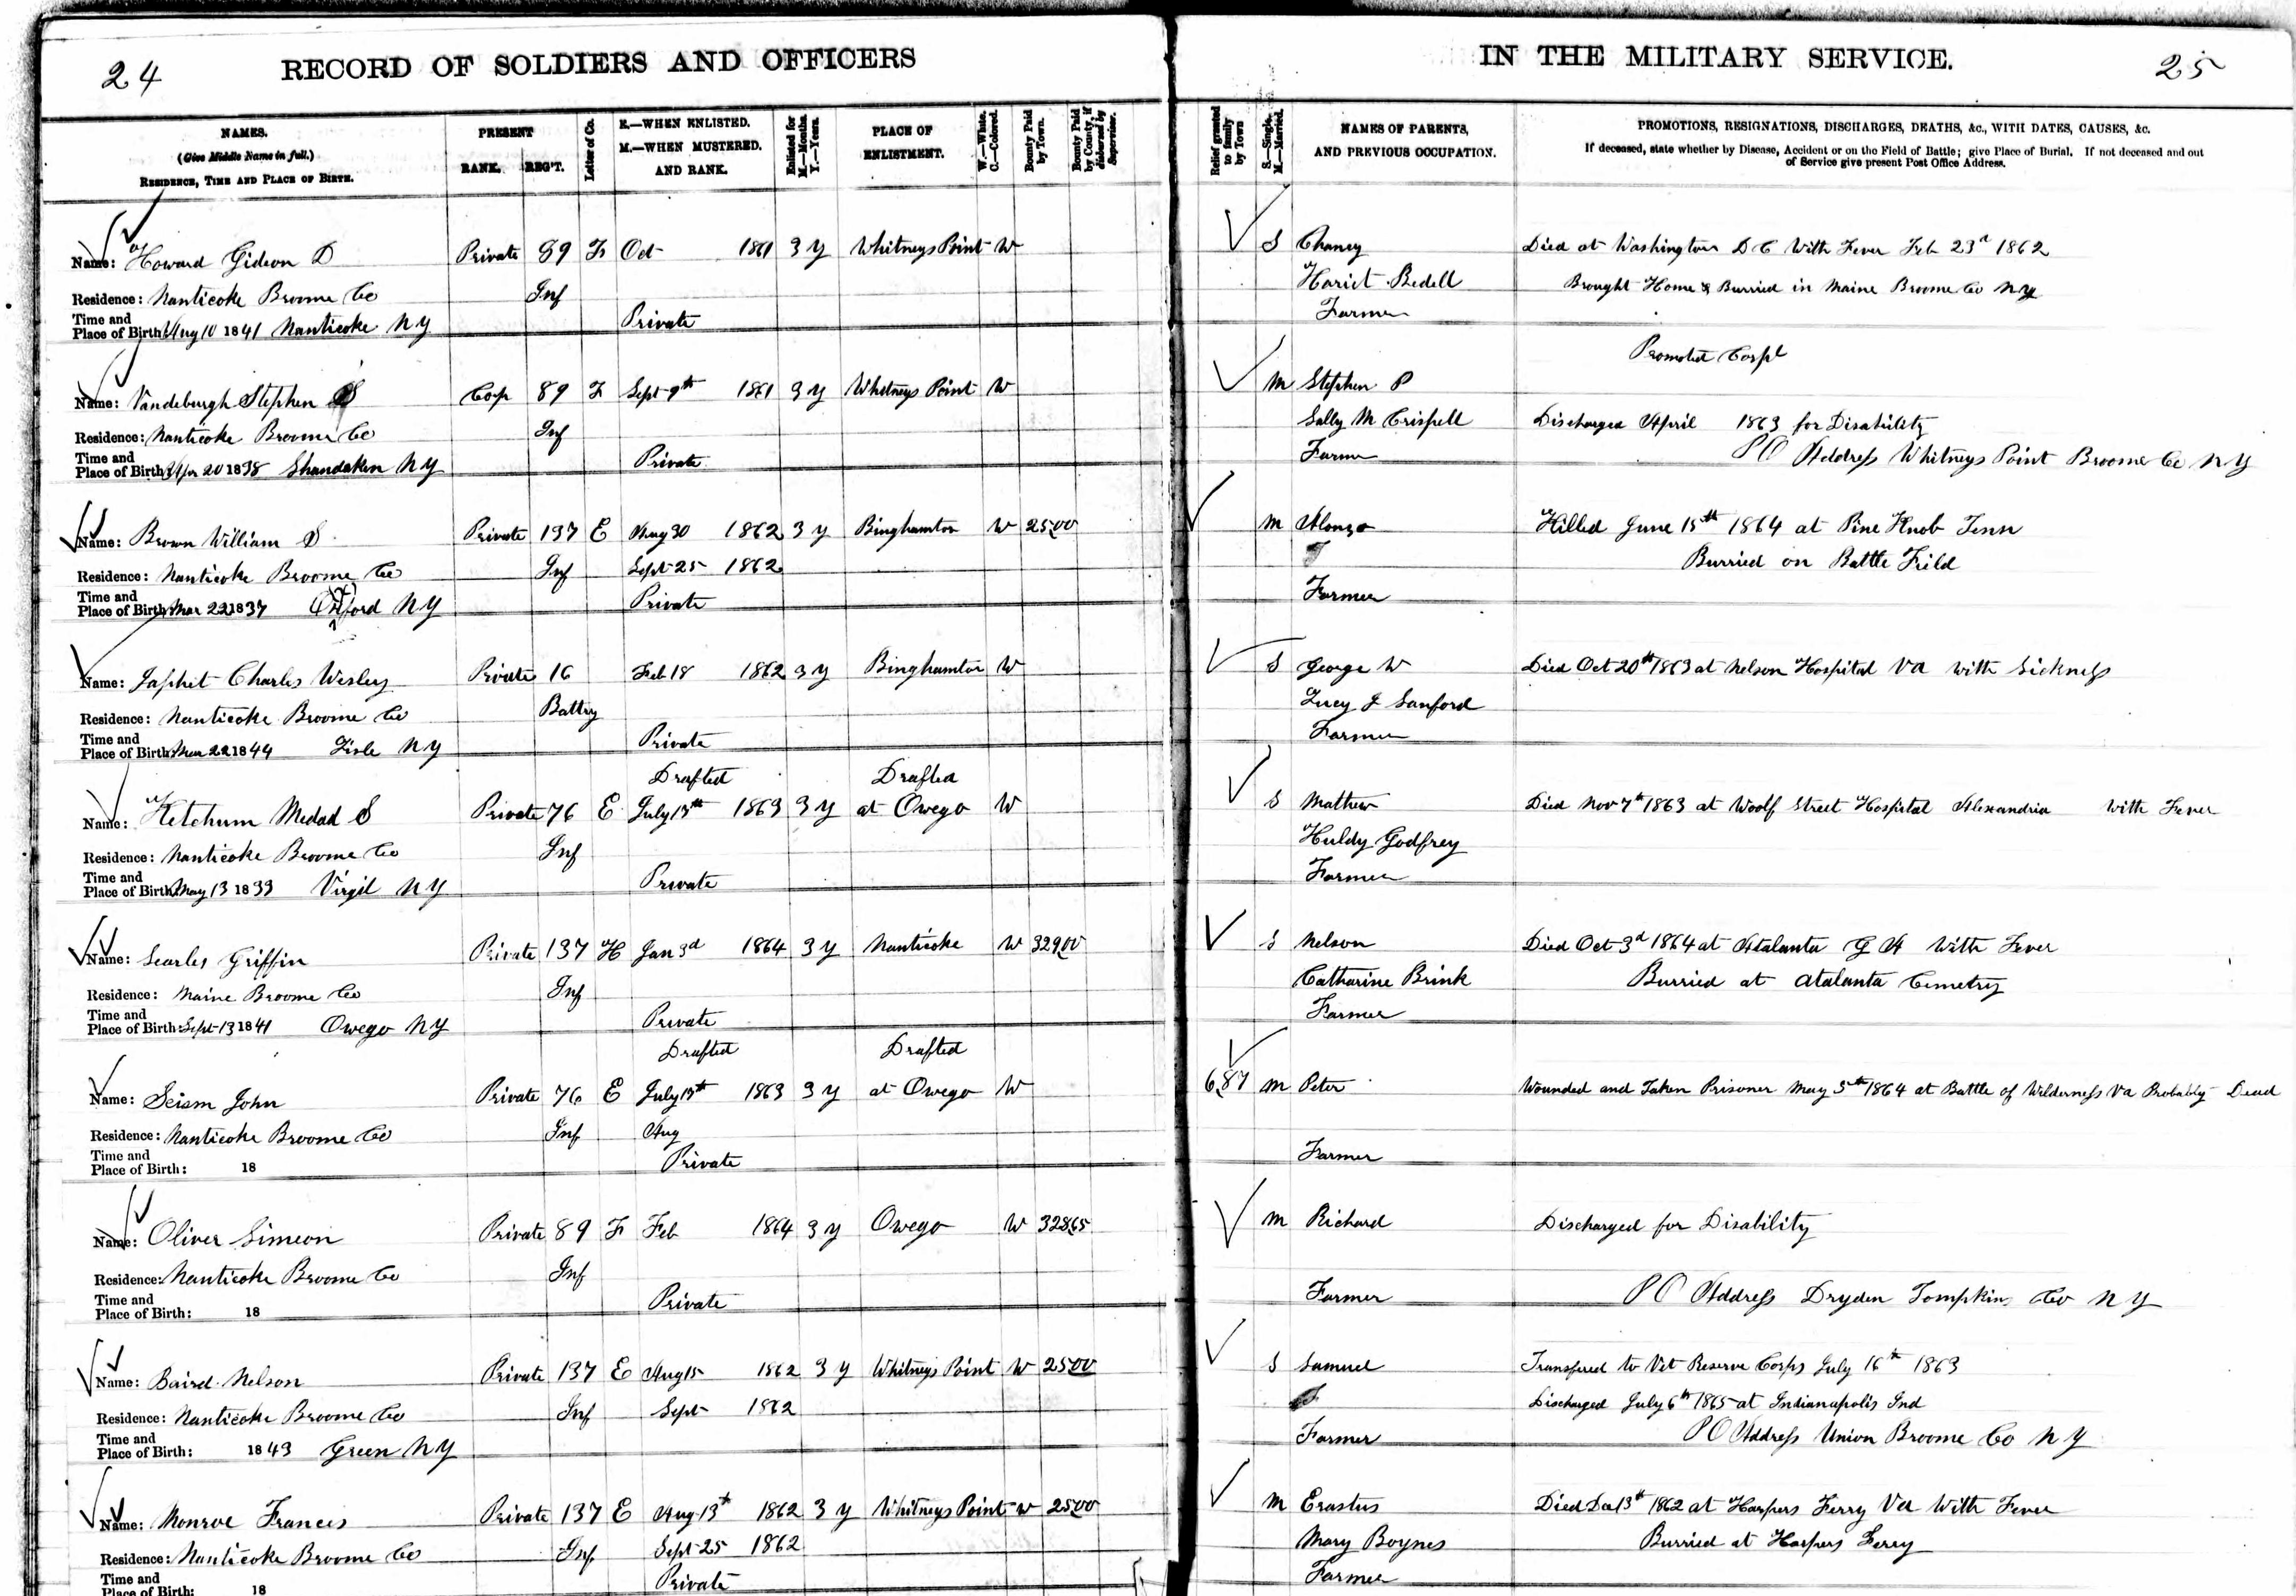 24
RECORD OF SOLDIERS AND OFFICERS
IN THE MILITARY SERVICE.
25
NAMES.
(Give Middle Name in full.)
RESIDENCE, TIME AND PLACE OF BIRTH.
PRESENT
RANK. REG'T.
Letter of Co.
E.—WHEN ENLISTED.
M.—WHEN MUSTERED.
AND RANK.
Enlisted for
M.—Months.
Y.—Years.
PLACE OF
ENLISTMENT.
W.—White.
C.—Colored.
Bounty Paid
by Town.
Bounty Paid
by County, if
disbursed by
Supervisor.
Relief granted
to family
by Town
S.—Single.
M.—Married.
NAMES OF PARENTS,
AND PREVIOUS OCCUPATION.
PROMOTIONS, RESIGNATIONS, DISCHARGES, DEATHS, &c., WITH DATES, CAUSES, &c.
If deceased, state whether by Disease, Accident or on the Field of Battle; give Place of Burial. If not deceased and out
of Service give present Post Office Address.
Name: Howard Gideon D Private 89 F Oct 1861 3 Y Whitneys Point W S Chancy Died at Washington D C With Fever Feb 23d 1862
Residence: Nanticoke Broome Co Inf Hariet Bedell Brought Home & Burried in Maine Broome Co NY
Time and
Place of Birth: Aug 10 1841 Nanticoke NY Private Farmer
Promoted Corpl
Name: Vandeburgh Stephen S Corp 89 F Sept 9th 1861 3 Y Whitneys Point W M Stephen P
Residence: Nanticoke Broome Co Inf Sally M Crispell Discharged April 1863 for Disability
Time and
Place of Birth: Apr 20 1838 Shandaken NY Private Farmer P O Address Whitneys Point Broome Co NY
Name: Brown William S Private 137 E Aug 30 1862 3 Y Binghamton W 25.00 M Alonzo Killed June 15th 1864 at Pine Knob Tenn
Residence: Nanticoke Broome Co Inf Sept 25 1862 Burried on Battle Field
Time and
Place of Birth: Mar 22 1837 Oxford NY Private Farmer
Name: Japhet Charles Wesley Private 16 Feb 18 1862 3 Y Binghamton W S George W Died Oct 20th 1863 at Nelson Hospital Va with Sickness
Residence: Nanticoke Broome Co Battry Lucy J Sanford
Time and
Place of Birth: Mar 22 1844 Lisle NY Private Farmer
Drafted Drafted
Name: Ketchum Medad S Private 76 E July 13th 1863 3 Y at Owego W S Mathew Died Nov 7th 1863 at Woolf Street Hospital Alexandria with Fever
Residence: Nanticoke Broome Co Inf Huldy Godfrey
Time and
Place of Birth: May 13 1833 Virgil NY Private Farmer
Name: Searles Griffin Private 137 H Jan 3d 1864 3 Y Nanticoke W 329.00 S Nelson Died Oct 3d 1864 at Atalanta G A With Fever
Residence: Maine Broome Co Inf Catharine Brink Burried at Atalanta Cemetry
Time and
Place of Birth: Sept 13 1841 Owego NY Private Farmer
Drafted Drafted
Name: Seism John Private 76 E July 13th 1863 3 Y at Owego W 6.87 M Peter Wounded and Taken Prisoner May 5th 1864 at Battle of Wilderness Va Probably Dead
Residence: Nanticoke Broome Co Inf Aug
Time and
Place of Birth: 18 Private Farmer
Name: Oliver Simeon Private 89 F Feb 1864 3 Y Owego W 328.65 M Richard Discharged for Disability
Residence: Nanticoke Broome Co Inf
Time and
Place of Birth: 18 Private Farmer P O Address Dryden Tompkins Co NY
Name: Baird Nelson Private 137 E Aug 15 1862 3 Y Whitneys Point W 25.00 S Samuel Transfered to Vet Reserve Corps July 16th 1863
Residence: Nanticoke Broome Co Inf Sept 1862 Discharged July 6th 1865 at Indianapolis Ind
Time and
Place of Birth: 1843 Green NY Farmer P O Address Union Broome Co NY
Name: Monroe Francis Private 137 E Aug 13th 1862 3 Y Whitneys Point W 25.00 M Erastus Died Dec 13th 1862 at Harpers Ferry Va With Fever
Residence: Nanticoke Broome Co Inf Sept 25 1862 Mary Boynes Burried at Harpers Ferry
Time and
Place of Birth: 18 Private Farmer